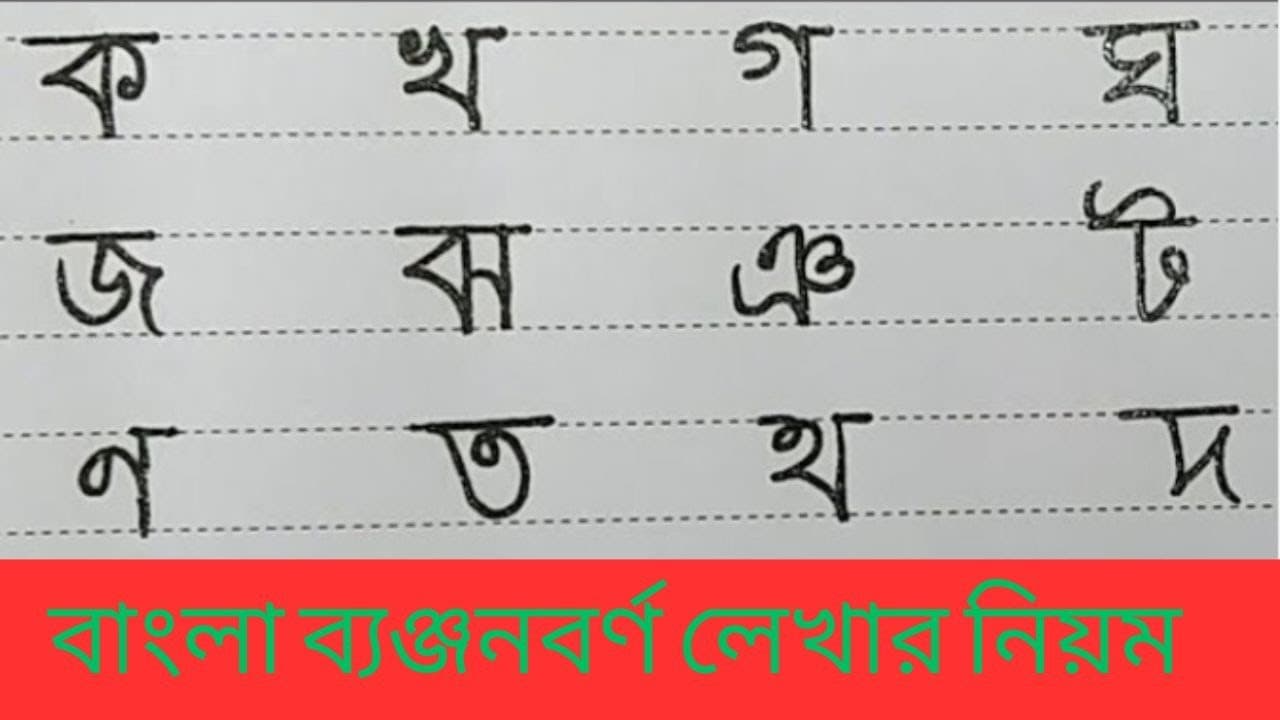 ক খ গ ঘ
জ ঝ ঞ ট
ণ ত থ দ
বাংলা ব্যঞ্জনবর্ণ লেখার নিয়ম